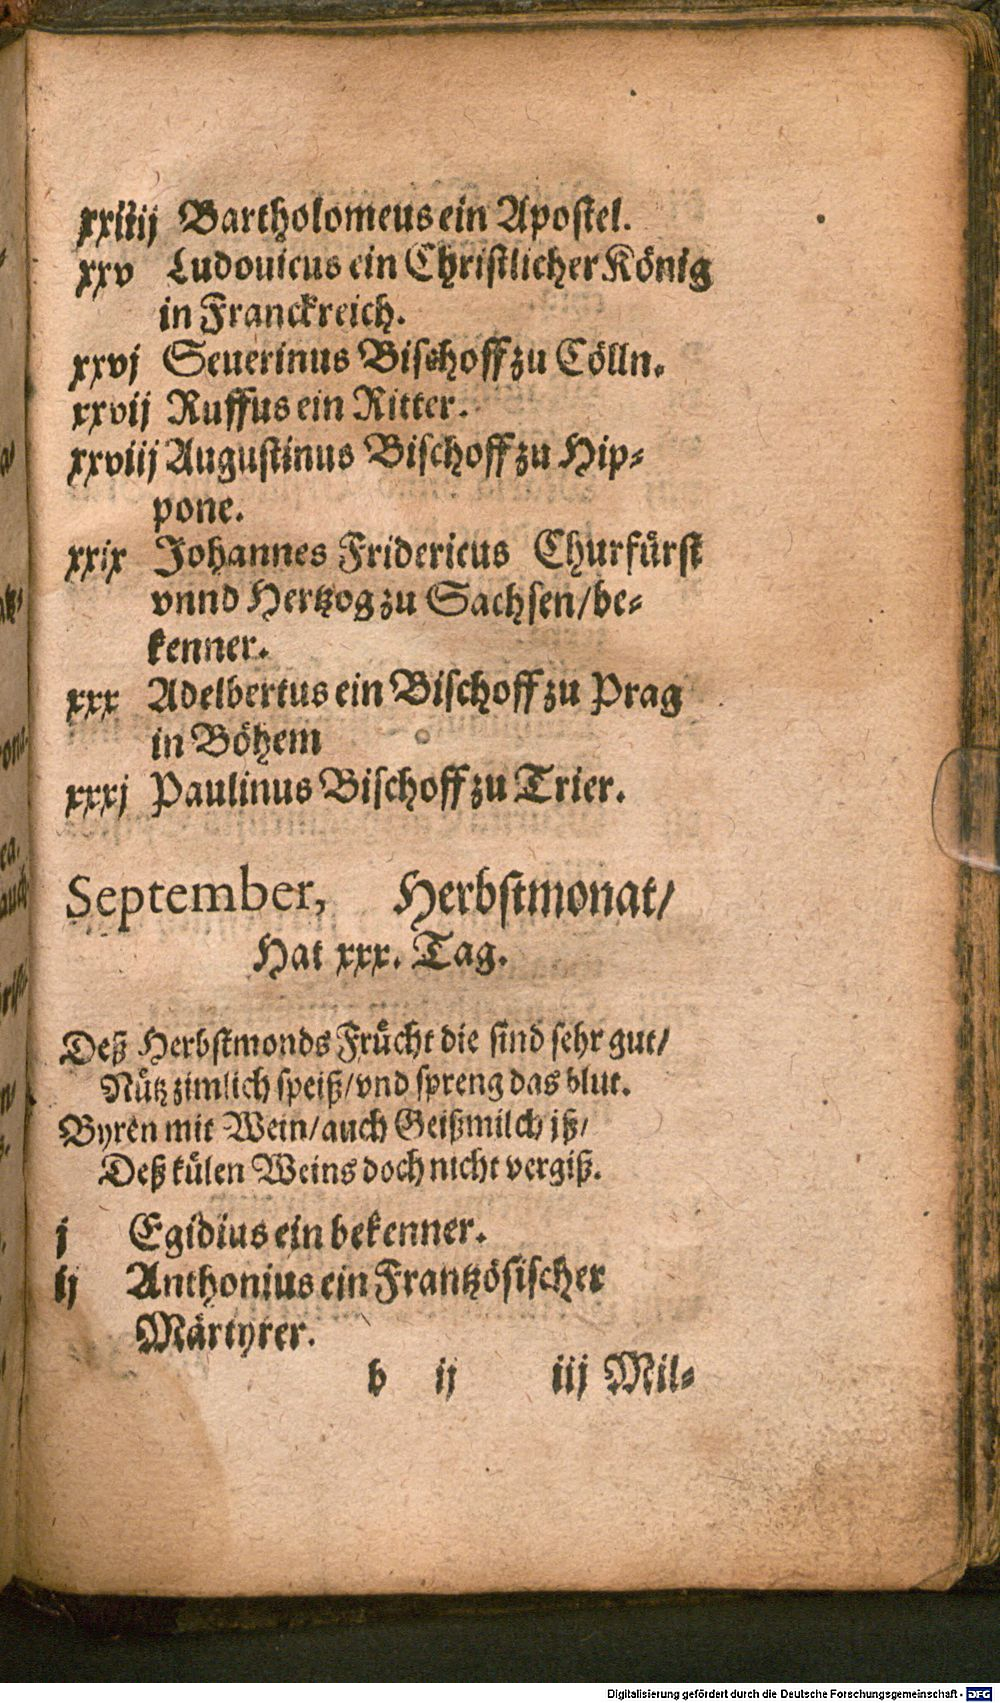 xxiiij Bartholomeus ein Apostel.
xxv Ludouicus ein Christlicher König
in Franckreich.
xxvj Seuerinus Bischoff zu Cölln.
xxvij Ruffus ein Ritter.
xxviij Augustinus Bischoff zu Hip-
pone.
xxix Johannes Fridericus Churfürst
vnnd Hertzog zu Sachsen/be-
kenner.
xxx Adelbertus ein Bischoff zu Prag
in Böhem
xxxj Paulinus Bischoff zu Trier.
September, Herbstmonat/
Hat xxx. Tag.
Deß Herbstmonds Frücht die sind sehr gut/
Nütz zimlich speiß/vnd spreng das blut.
Byren mit Wein/auch Geißmilch iß/
Deß külen Weins doch nicht vergiß.
j Egidius ein bekenner.
ij Anthonius ein Frantzösischer
Märtyrer.
b ij iij Mil-
Digitalisierung gefördert durch die Deutsche Forschungsgemeinschaft - DFG